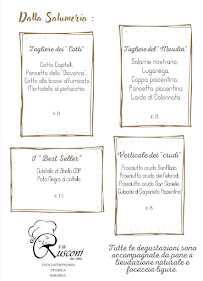 Dalla Salumeria :
Tagliere dei "Cotti"
Cotto Capitelli,
Pancetta della "Giovanna",
Cotto alla brace affumicato,
Mortadella al pistacchio.
€ 8
Tagliere del "Maiulas"
Salame nostrano,
Luganega,
Coppa piacentina,
Pancetta piacentina
Lardo di Colonnata
€ 8
I "Best Seller"
Culatello di Zibello DOP
Pata Negra al coltello
€ 17
Verticale dei "crudi"
Prosciutto crudo
Prosciutto crudo del
Prosciutto crudo San Daniele
Culaccia di Canossa Piacentina
€ 8
F.lli
Rusconi
ENOGASTRONOMIA
STORICA
Tutte le degustazioni sono
accompagnate da pane a
lievitazione naturale e
focaccia ligure.